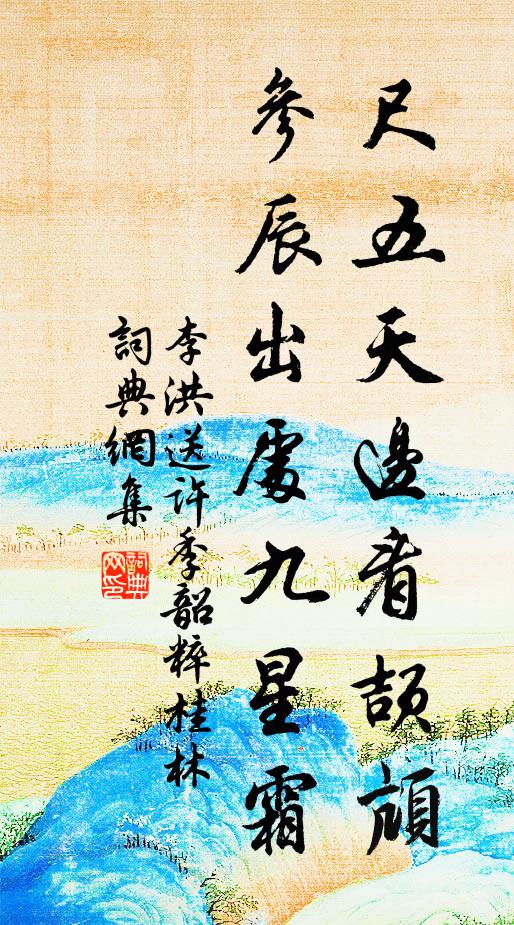 尺五天邊看頡頏
參辰出處九星霜
李洪送許季韶粹桂林
詞典網集
詞典
文印